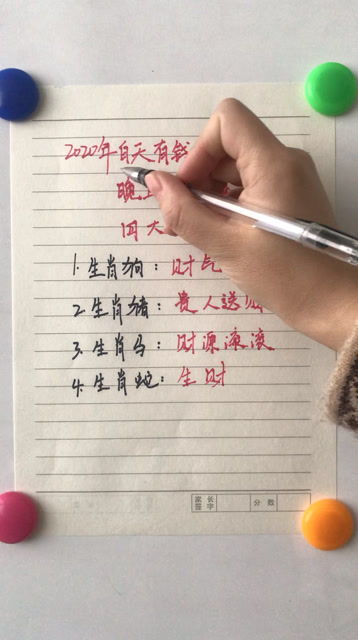 2020年白天有钱
晚上
四大
1.生肖狗：财气
2.生肖猪：贵人送
3.生肖马：财源滚滚
4.生肖蛇：生财
家长签字 分数